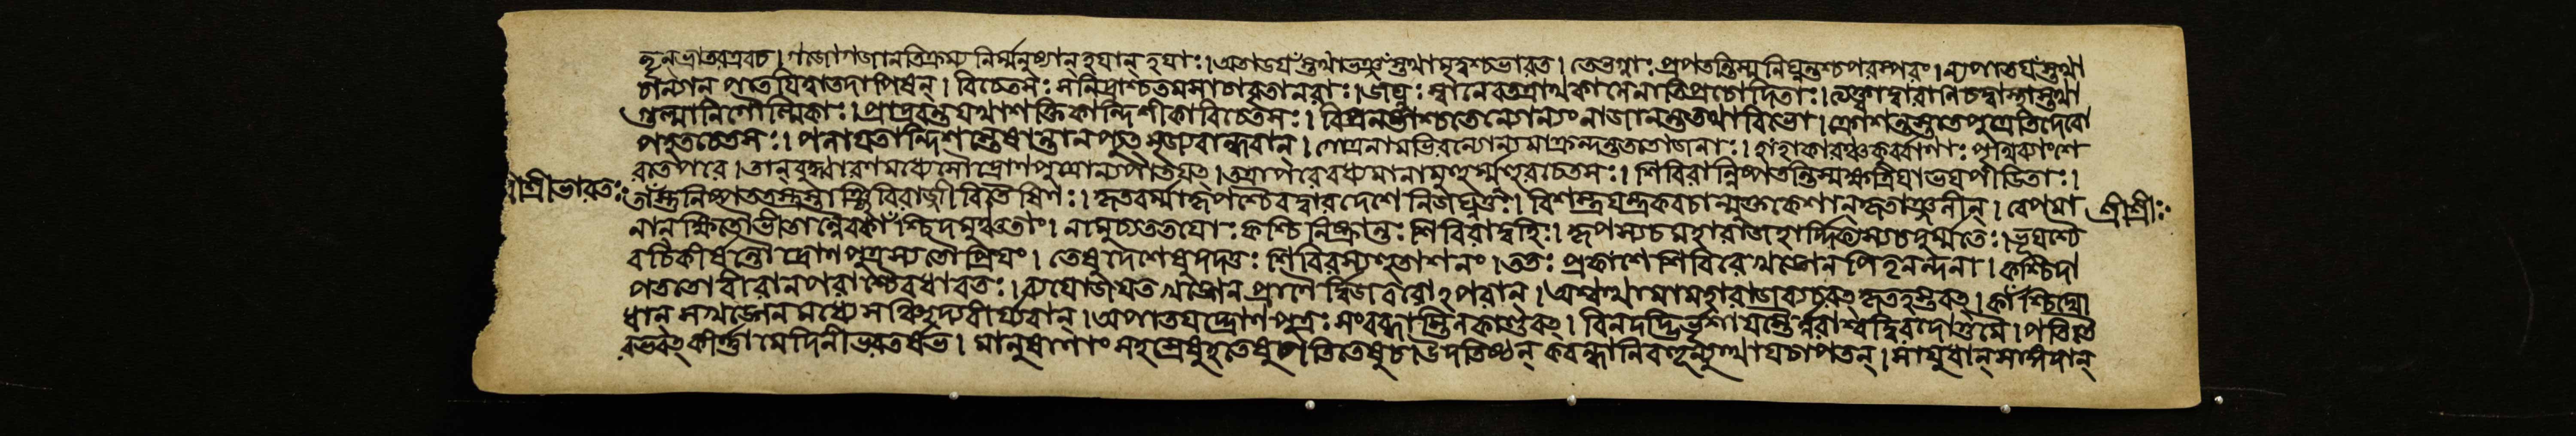 হৃনভ্রাতরএবচ। গজাগজানতিক্রম্য নির্ম্মনুষ্যান্ হয়ান্ হয়াঃ। অতাডয়ংস্তথাভঞ্জংস্তথামৃদ্নংশ্চভারত। তেভগ্নাঃ প্রপতন্তিস্মনিঘ্নন্তশ্চপরস্পরং। ন্যপাতয়ংস্তথা
চান্যান পাতয়িত্বাতদাপিষন্। বিচেতসঃ সনিদ্রাশ্চতমসাচাবৃতানরাঃ। জঘ্নুঃ স্বানেবতত্রাথকালেনাভিপ্রচোদিতাঃ। ত্যক্ত্বাদ্বারানিচদ্বাস্থাস্তথা
গুল্মানিগৌল্মিকাঃ। প্রাদ্রবন্তযথাশক্তিকান্দিশীকাবিচেতসঃ। বিপ্রনষ্টাশ্চতেন্যোন্যংনাজানন্ততথাবিভো। ক্রোশন্তস্তাতপুত্রেতিদৈবো
পহতচেতসঃ। পলায়তান্দিশস্তেষাংস্বানপ্যুত্সৃজ্যবান্ধবান্। গোত্রনামভিরন্যোন্যমাক্রন্দন্তততোজনাঃ। হাহাকারঞ্চকুর্ব্বাণাঃ পৃথিব্যাংশে
রতেপরে। তান্বুদ্ধারণমধ্যেসৌদ্রোণপুত্রোন্যপাতয়ত্। তত্রাপরেবধ্যমানামুহুর্ম্মুহুরচেতসঃ। শিবিরান্নিষ্পতন্তিস্মক্ষত্রিয়াভয়পীডিতাঃ।
শ্রীভারতঃ
তাংস্তুনিষ্পততস্ত্রস্তাঞ্ছিবিরাজ্জীবিতৈষিণঃ। কৃতবর্ম্মাকৃপশ্চৈবদ্বারদেশেনিজঘ্নতুঃ। বিশস্ত্রযন্ত্রকবচান্মুক্তকেশান্কৃতাঞ্জলীন্। বেপমা
শ্রীশ্রীঃ
নান্ক্ষিতৌভীতান্নৈবকাংশ্চিদমুঞ্চতাং। নামুচ্যততয়োঃ কশ্চিন্নিষ্ক্রান্তঃ শিবিরাদ্বহিঃ। কৃপস্যচমহারাজহার্দ্দিক্যস্যচদুর্ম্মতেঃ। ভূয়শ্চৈ
বচিকীর্ষন্তৌদ্রোণপুত্রস্যতৌপ্রিয়ং। তেষুদেশেষুদদতুঃ শিবিরস্যহুতাশনং। ততঃ প্রকাশেশিবিরেখড্গেনপিতৃনন্দনা। কাংশ্চিদা
পততোবীরানপরাংশ্চৈবধাবতঃ। ব্যয়োজয়তখড্গেনপ্রাণৈর্দ্বিজবরোঽপরান্। অশ্বত্থামামহারাজব্যচরত্কৃতহস্তবত্। কাংশ্চিদ্যো
ধান্সখড্গেনমধ্যেসংছিদ্যবীর্য্যবান্। অপাতয়দ্দ্রোণপুত্রঃ সংরব্ধস্তিলকাণ্ডবত্। বিনদদ্ভির্ভৃশায়স্তৈর্নরাশ্বদ্বিরদোত্তমৈঃ। পতিতৈ
রভবত্কীর্ণামেদিনীভরতর্ষভ। মানুষাণাংসহস্রেষুহতেষুপতিতেষুচ। উদতিষ্ঠন্কবন্ধানিবহূন্যুত্থায়চাপতন্। সায়ুধান্সাঙ্গদান্